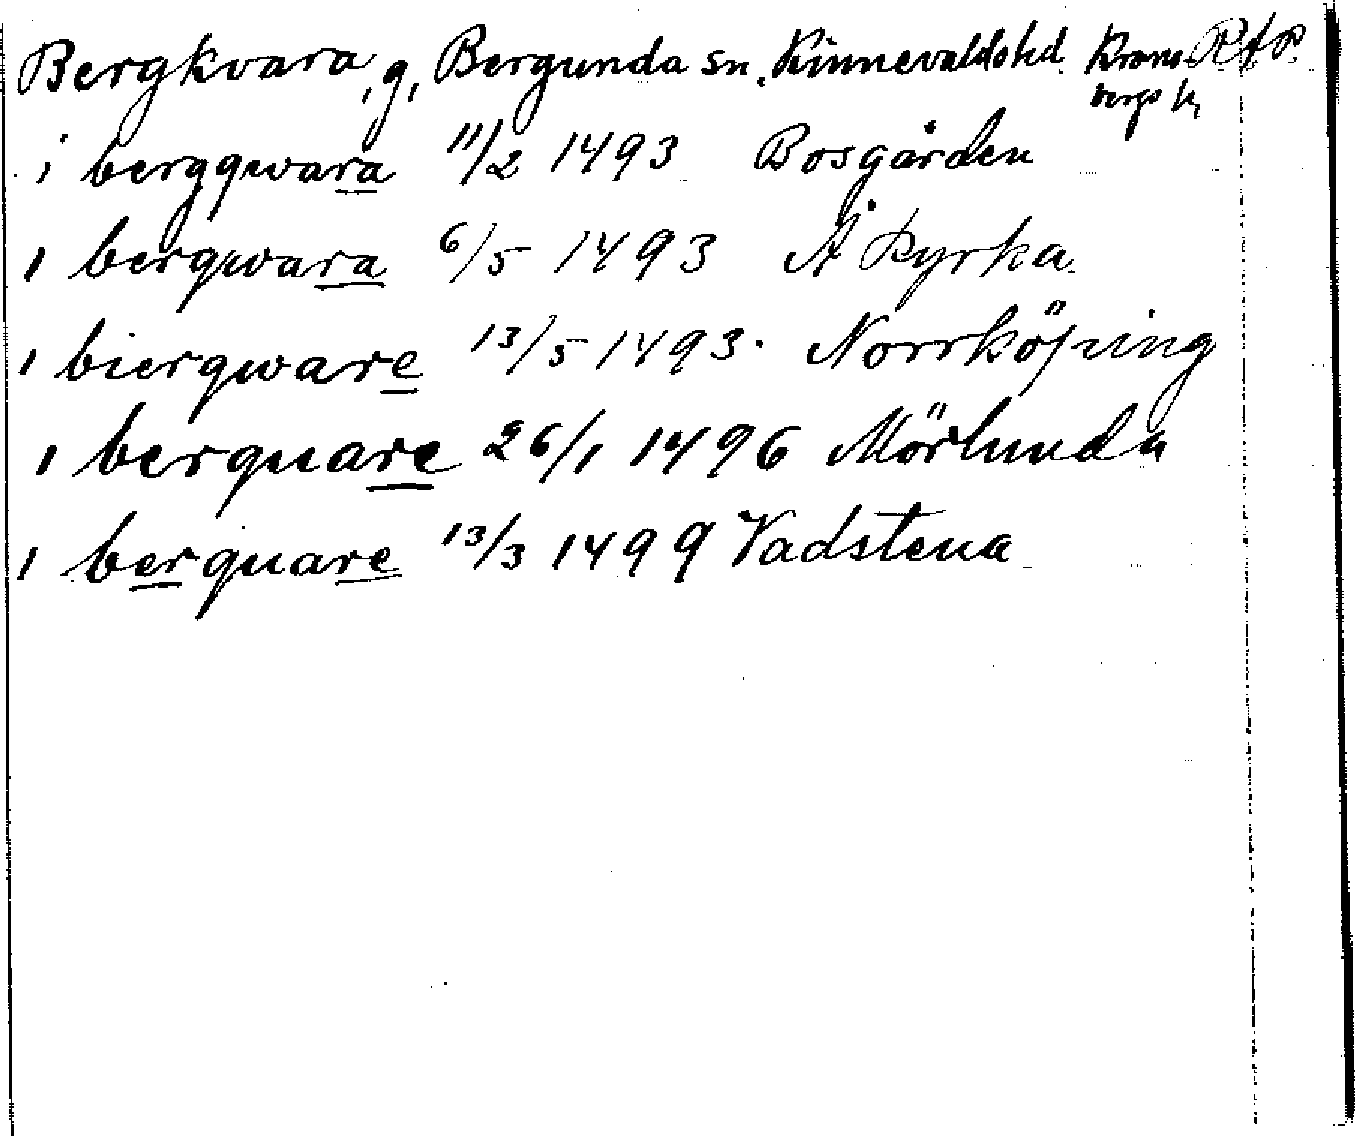 Bergkvara, g, Bergunda sn. Kinnevalds hd. Krono- RAP.
bergs l,
i bergqwara 11/2 1493 Bosgården
i bergwara 6/5 1493 Å kyrka.
i biergware 13/5 1493. Norrköping
i berquare 26/1 1496 Mörlunda
i berquare 13/3 1499 Vadstena